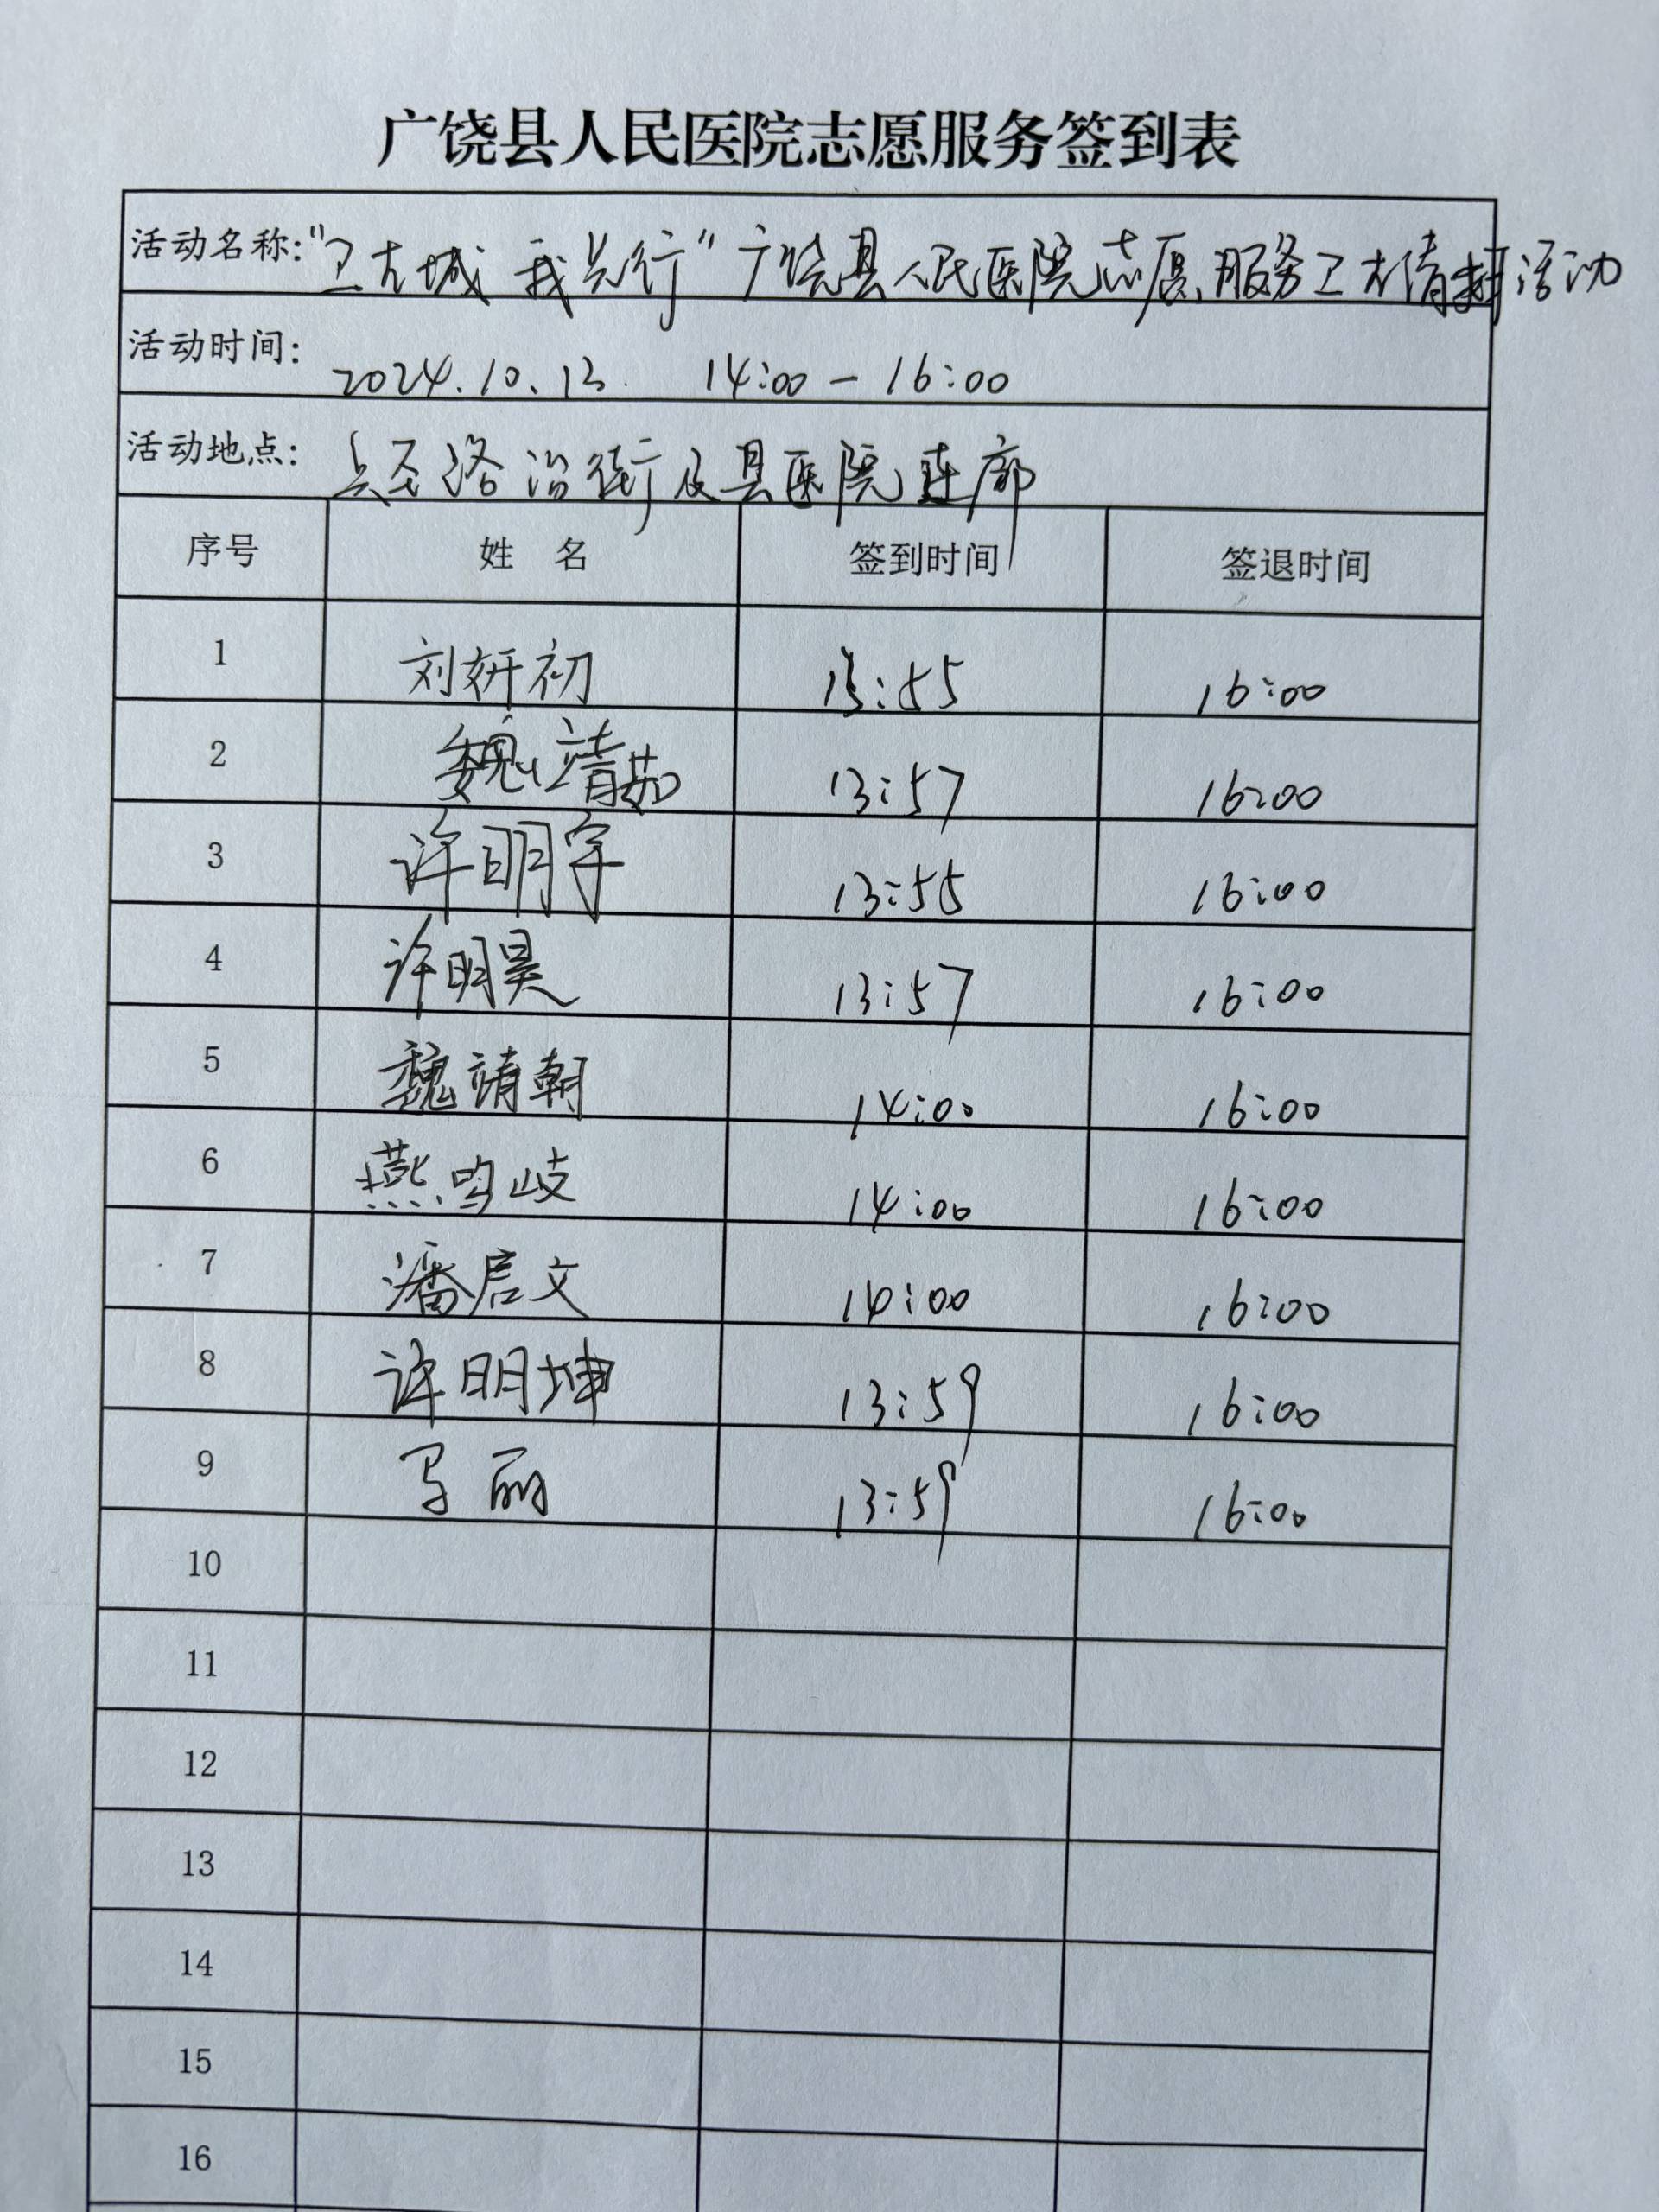 广饶县人民医院志愿服务签到表
活动名称:"卫古城 我先行"广饶县人民医院志愿服务卫生清扫活动
活动时间: 2024.10.13. 14:00-16:00
活动地点: 兵圣路沿街及县医院连廊
序号 姓 名 签到时间 签退时间
1 刘妍初 13:55 16:00
2 魏靖茹 13:57 16:00
3 许明宇 13:55 16:00
4 许明昊 13:57 16:00
5 魏靖朝 14:00 16:00
6 燕鸣岐 14:00 16:00
7 潘启文 14:00 16:00
8 许明坤 13:59 16:00
9 马丽 13:59 16:00
10
11
12
13
14
15
16